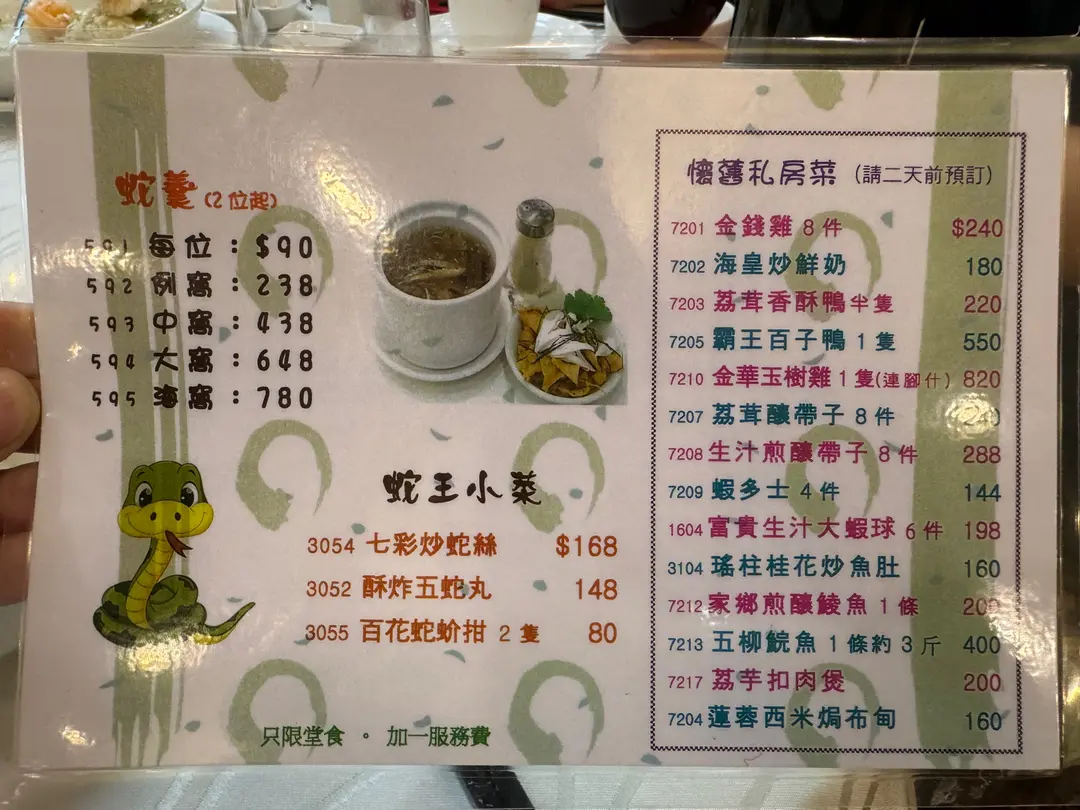 蛇羹(2位起)
591 每位：$90
592 例窩：238
593 中窩：438
594 大窩：648
595 海窩：780
蛇王小菜
3054 七彩炒蛇絲 $168
3052 酥炸五蛇丸 148
3055 百花蛇蚧拑 2隻 80
只限堂食。加一服務費
懷舊私房菜 (請二天前預訂)
7201 金錢雞 8件 $240
7202 海皇炒鮮奶 180
7203 荔茸香酥鴨半隻 220
7205 霸王百子鴨 1隻 550
7210 金華玉樹雞 1隻(連腳什) 820
7207 荔茸釀帶子 8件
7208 生汁煎釀帶子 8件 288
7209 蝦多士 4件 144
1604 富貴生汁大蝦球 6件 198
3104 瑤柱桂花炒魚肚 160
7212 家鄉煎釀鯪魚 1條 200
7213 五柳鯇魚 1條約3斤 400
7217 荔芋扣肉煲 200
7204 蓮蓉西米焗布甸 160